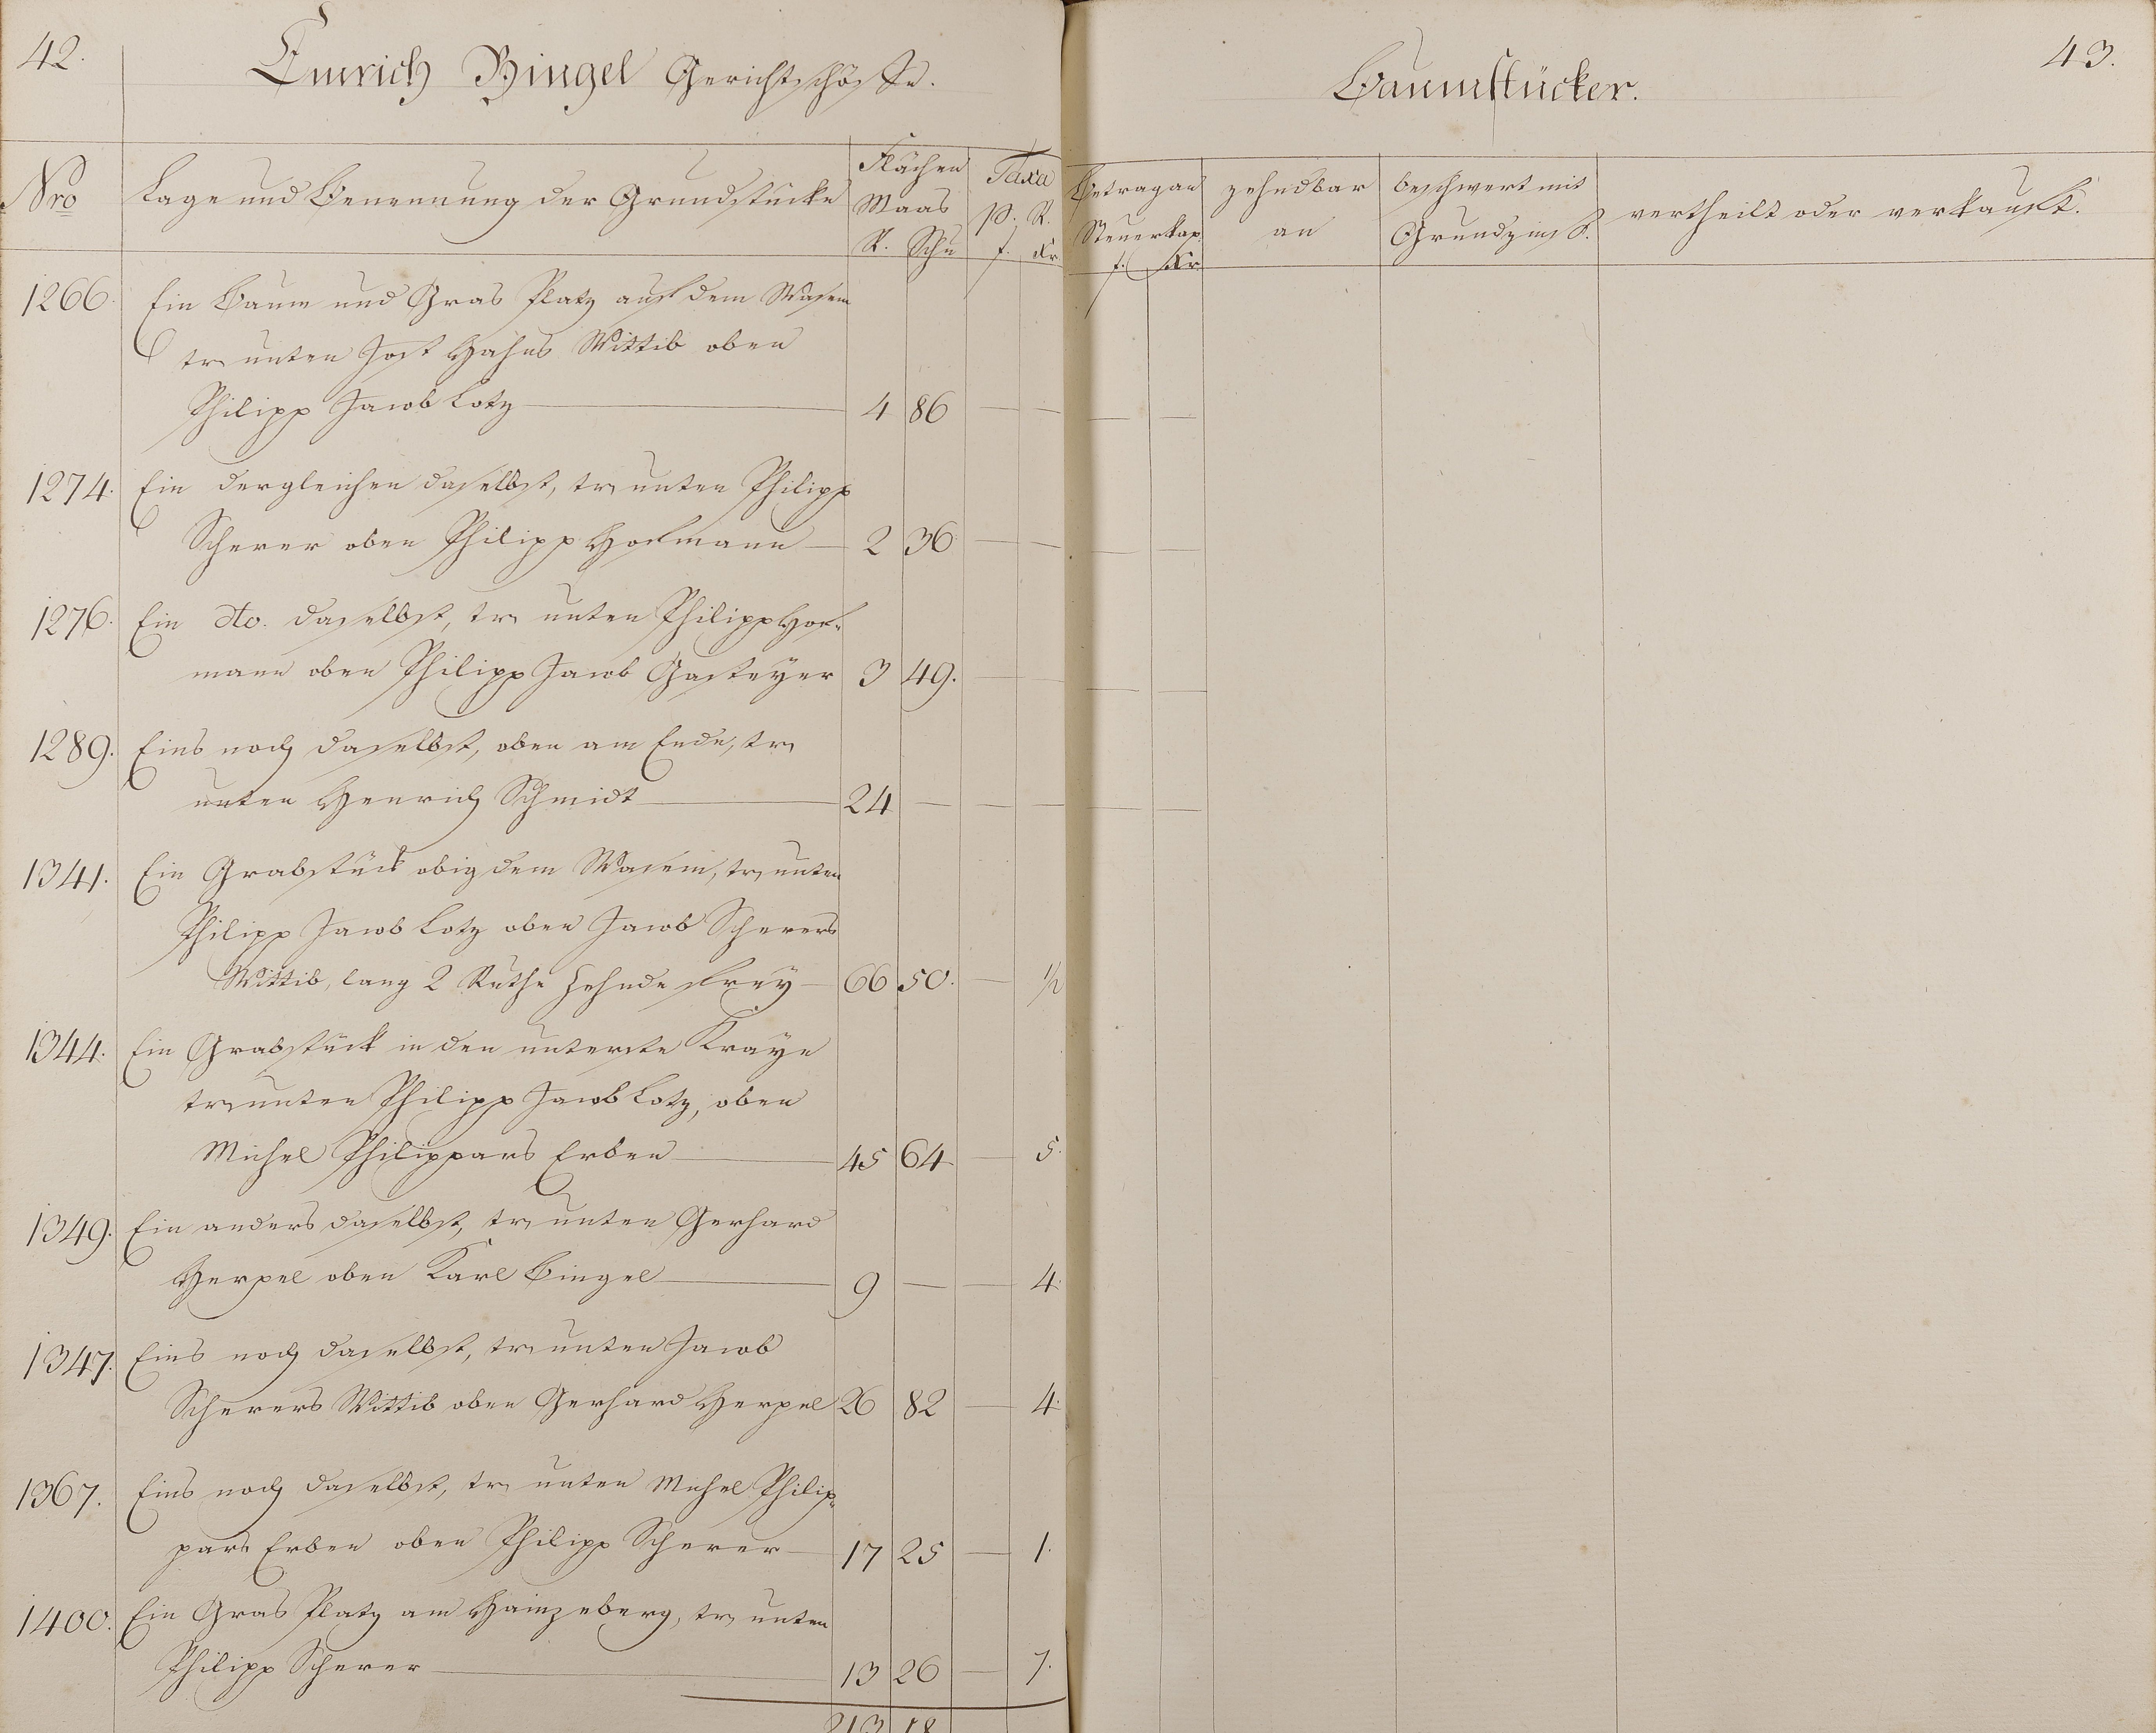 42.
Emrich Bingel Gerichtschöffe.
Nro
Lage und Benennung der Grundstücke
Flächen
Maas
R. Schu
Taxa
p. R.
f. Kr
1266. Ein Baum und Gras Platz auf dem Wasem
tr. unten Jost Hahns Wittib oben
Philipp Jacob Lotz — 4 86 — —
1274. Ein dergleichen daselbst, tr. unten Philipp
Scherer oben Philipp Hofmann — 2 36 — —
1276. Ein dto. daselbst, tr. unten Philipp Hof-
mann oben Philipp Jacob Gasteyer 3 49. — —
1289. Eins noch daselbst, oben am Ende, tr.
unten Henrich Schmidt — 24 — — —
1341. Ein Grabstück obig dem Wasem, tr. unten
Philipp Jacob Lotz oben Jacob Scherers
Wittib, lang 2 Ruthe Zehnde frey — 66 50. — 1/2
1344. Ein Grabstück in den unterste Kraye
tr. unten Philipp Jacob Lotz, oben
Michel Philippars Erben — 45 64 — 5.
1349. Ein anders daselbst, tr. unten Gerhard
Herpel oben Karl Bingel — 9 — — 4.
1347. Eins noch daselbst, tr. unten Jacob
Scherers Wittib oben Gerhard Herpel 26 82 — 4.
1367. Eins noch daselbst, tr. unten Michel Philip-
pars Erben oben Philipp Scherer — 17 25 — 1.
1400. Ein Gras Platz am Hainzeberg, tr. unten
Philipp Scherer — 13 26 — 7.
213 18
43.
Baumstücker.
Betrag an
Steuerkap.
f. Kr
zehndbar
an
beschwert mit
Grundzinß.
vertheilt oder verkauft.